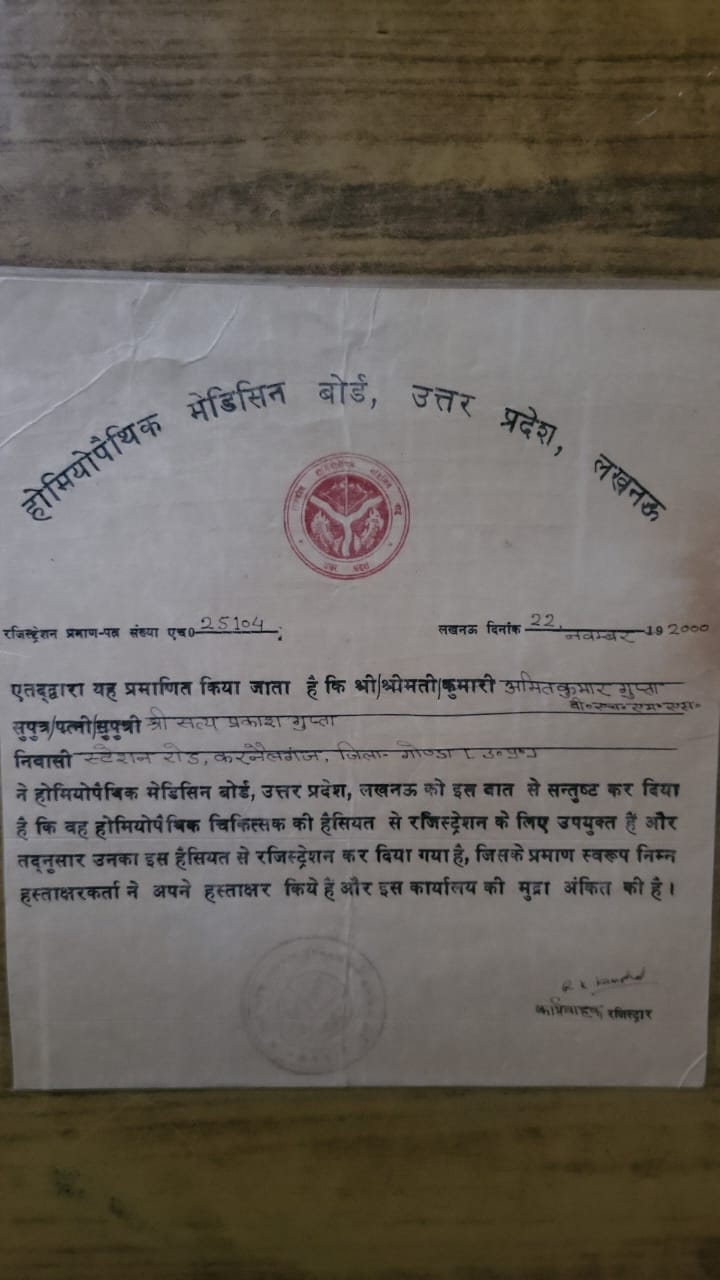 होमियोपैथिक मेडिसिन बोर्ड, उत्तर प्रदेश, लखनऊ
उत्तर प्रदेश
रजिस्ट्रेशन प्रमाण-पत्र संख्या एच0 25104
लखनऊ दिनांक 22 नवम्बर 19 2000
एतद्द्वारा यह प्रमाणित किया जाता है कि श्री/श्रीमती/कुमारी अमित कुमार गुप्ता
बी॰एच॰एम॰एस॰
सुपुत्र/पत्नी/सुपुत्री श्री सत्य प्रकाश गुप्ता
निवासी स्टेशन रोड, करनैलगंज, जिला- गोण्डा (उ॰प्र॰)
ने होमियोपैथिक मेडिसिन बोर्ड, उत्तर प्रदेश, लखनऊ को इस बात से सन्तुष्ट कर दिया
है कि वह होमियोपैथिक चिकित्सक की हैसियत से रजिस्ट्रेशन के लिए उपयुक्त हैं और
तद्नुसार उनका इस हैसियत से रजिस्ट्रेशन कर दिया गया है, जिसके प्रमाण स्वरूप निम्न
हस्ताक्षरकर्ता ने अपने हस्ताक्षर किये हैं और इस कार्यालय की मुद्रा अंकित की है।
रजिस्ट्रार